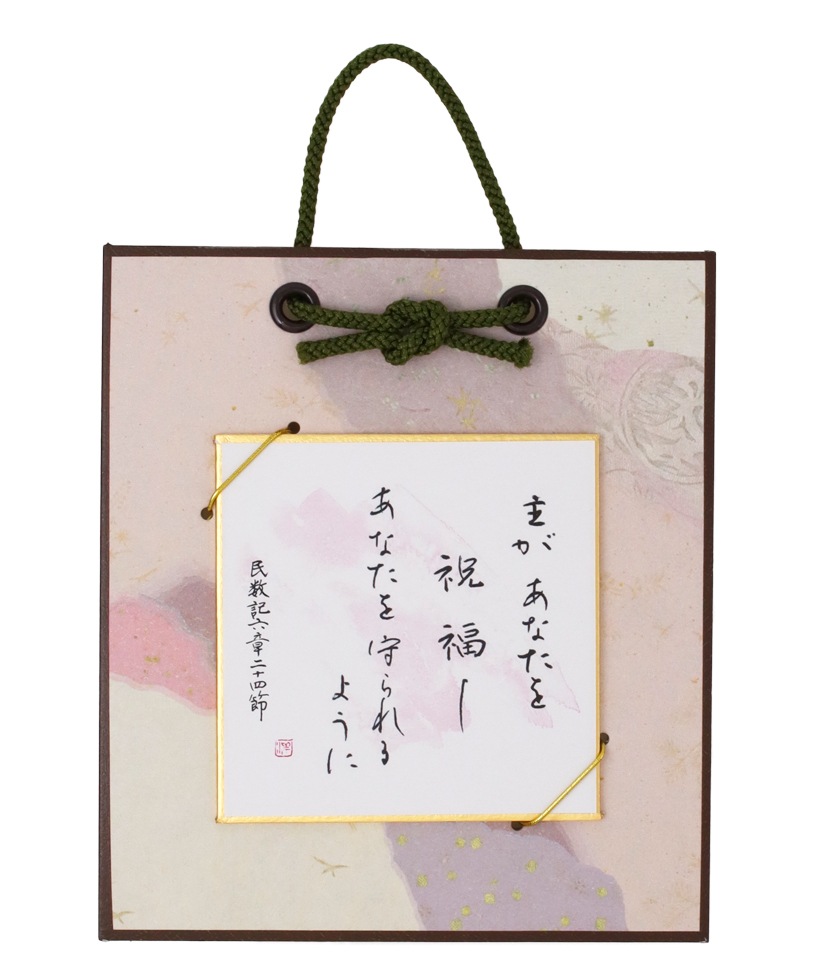 主が あなたを
祝福し
あなたを守られる
ように
民数記六章二十四節